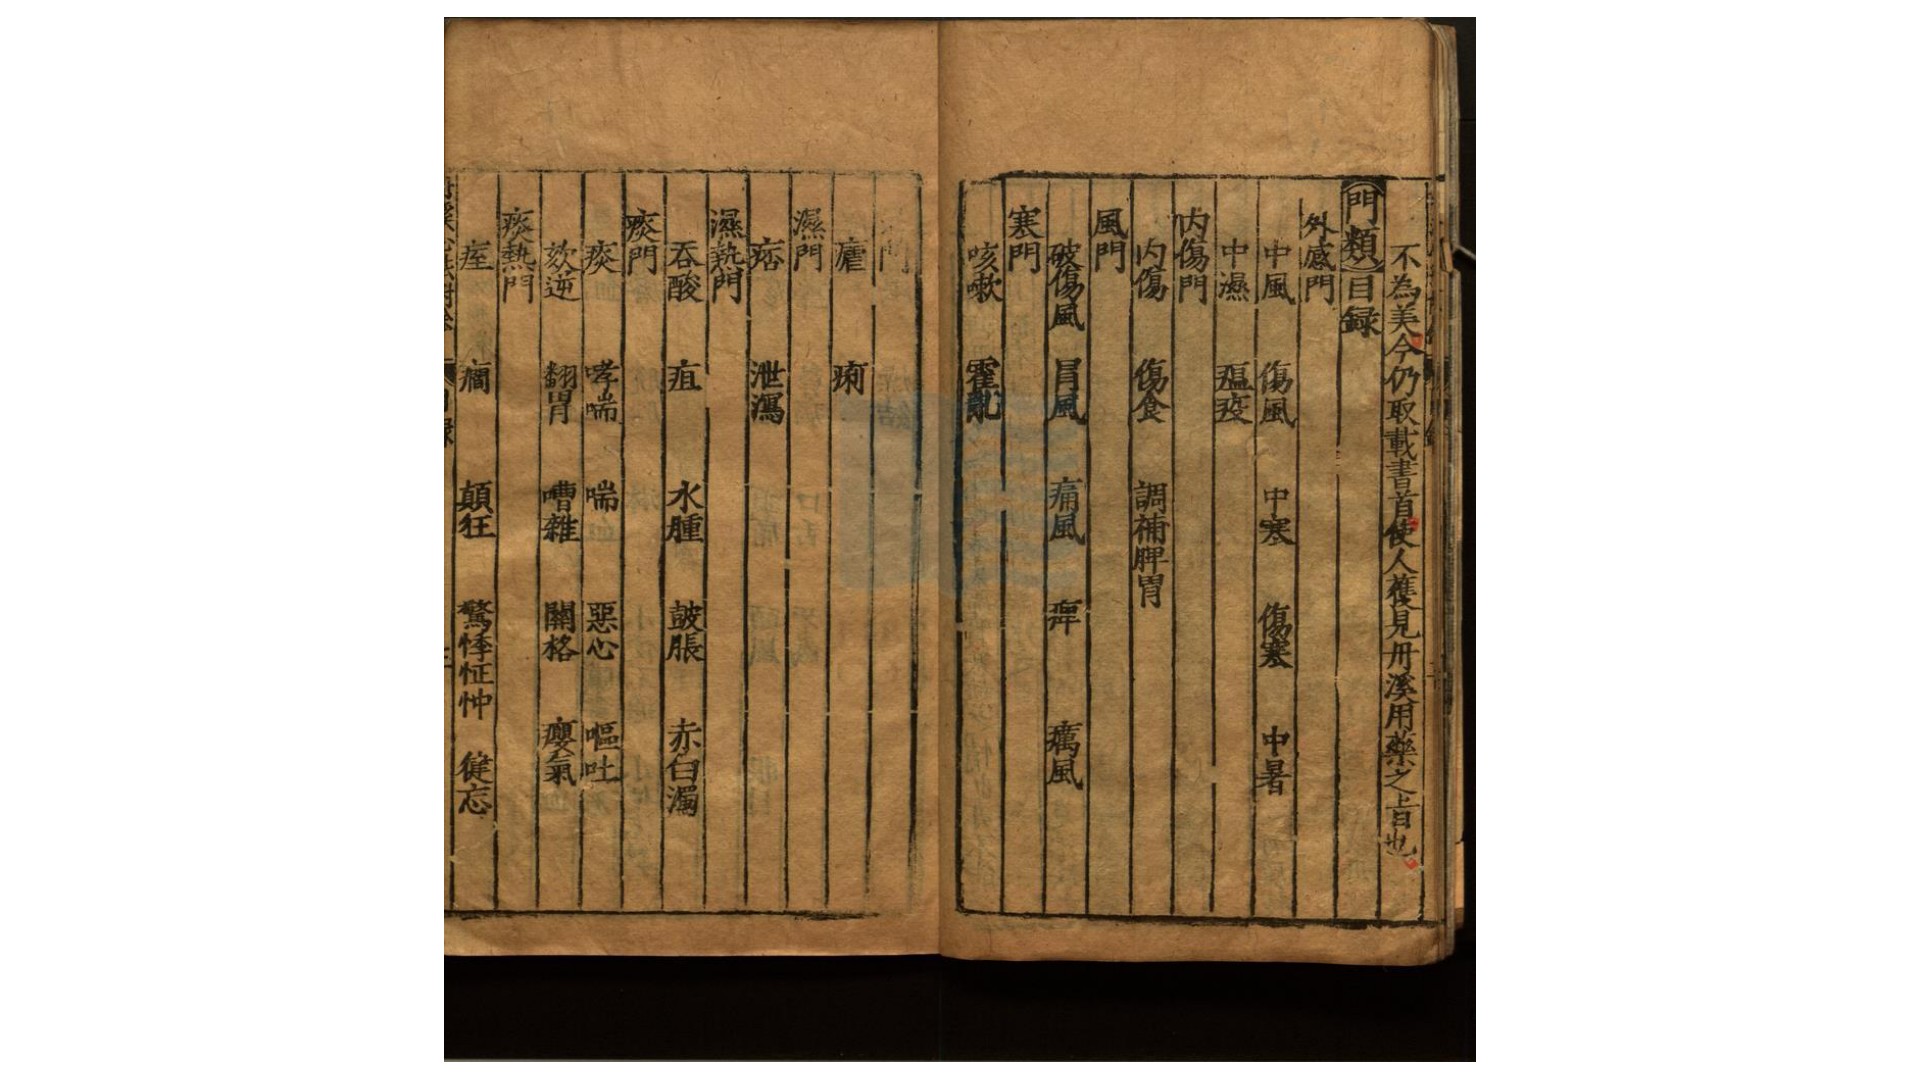 不為美今仍取載書首使人獲見丹溪用藥之旨也
門類目録
外感門
中風 傷風 中寒 傷寒 中暑
中濕 瘟疫
内傷門
内傷 傷食 調補脾胃
風門
破傷風 冒風 痛風 痹 癘風
寒門
咳嗽 霍亂
瘧 痢
濕門
痞 泄瀉
濕熱門
吞酸 疸 水腫 鼓脹 赤白濁
痰門
痰 哮喘 喘 惡心 嘔吐
欬逆 翻胃 嘈雜 關格 癭氣
痰熱門
痓 癇 顛狂 驚悸怔忡 健忘